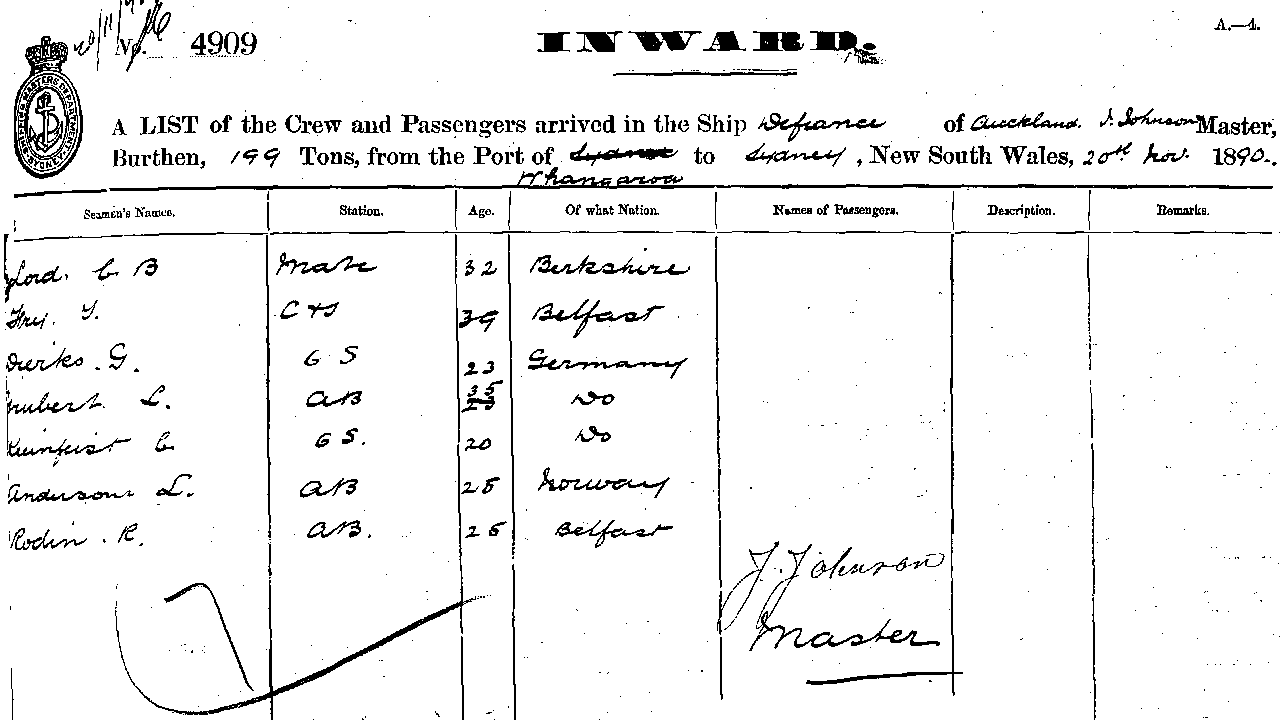 20/11/90
No. 4909
INWARD.
A.—4.
A LIST of the Crew and Passengers arrived in the Ship Defiance of Auckland. J. Johnson Master,
Burthen, 199 Tons, from the Port of Sydney to Sydney, New South Wales, 20th Nov. 1890.
Whangaroa
Seamen's Names. Station. Age. Of what Nation. Names of Passengers. Description. Remarks.
Lord. C B Mate 32 Berkshire
Fry. T. C & S 39 Belfast
Dierks. G. O S 23 Germany
Hubert L. AB 35 Do
C OS. 20 Do
Anderson L. AB 25 Norway
Rodin. R. AB. 25 Belfast
J. Johnson
Master